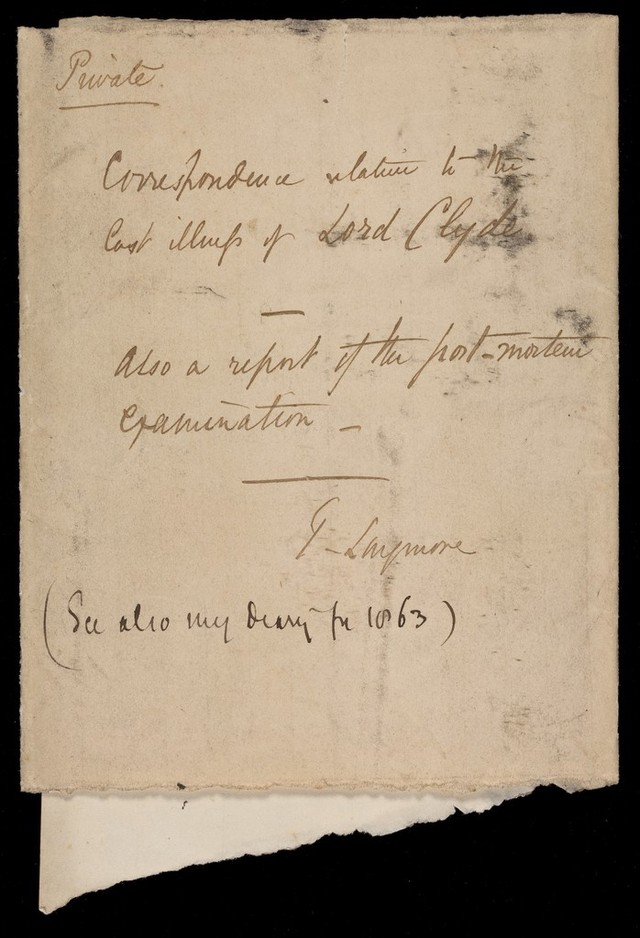 Private
Correspondence relative to the
last illness of Lord Clyde
—
Also a report of the post-mortem
examination —
T. Longmore
(See also my diary for 1863)